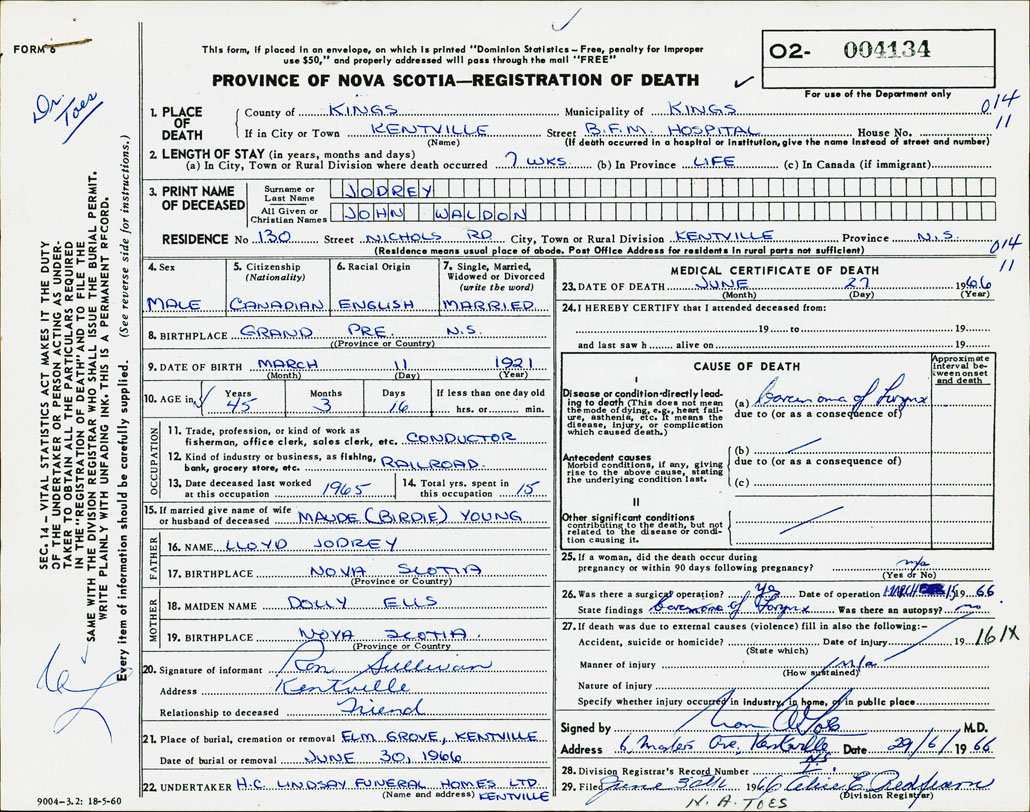 FORM 6
This form, if placed in an envelope, on which is printed "Dominion Statistics — Free, penalty for improper
use $50," and properly addressed will pass through the mail "FREE"
PROVINCE OF NOVA SCOTIA—REGISTRATION OF DEATH
O2- 004134
For use of the Department only
Dr. Toes
014
11
1. PLACE OF DEATH
County of KINGS Municipality of KINGS
If in City or Town KENTVILLE Street B.F.M. HOSPITAL House No.
(Name) (If death occurred in a hospital or institution, give the name instead of street and number)
2. LENGTH OF STAY (in years, months and days)
(a) In City, Town or Rural Division where death occurred 7 WKS. (b) In Province LIFE (c) In Canada (if immigrant)
3. PRINT NAME OF DECEASED
Surname or Last Name JODREY
All Given or Christian Names JOHN WALDON
RESIDENCE No 130 Street NICHOLS RD City, Town or Rural Division KENTVILLE Province N.S.
(Residence means usual place of abode. Post Office Address for residents in rural parts not sufficient)
014
11
4. Sex MALE
5. Citizenship (Nationality) CANADIAN
6. Racial Origin ENGLISH
7. Single, Married, Widowed or Divorced (write the word) MARRIED
8. BIRTHPLACE GRAND PRE. N.S.
(Province or Country)
9. DATE OF BIRTH MARCH 11 1921
(Month) (Day) (Year)
10. AGE in Years 45 Months 3 Days 16 If less than one day old hrs. or min.
OCCUPATION
11. Trade, profession, or kind of work as
fisherman, office clerk, sales clerk, etc. CONDUCTOR
12. Kind of industry or business, as fishing,
bank, grocery store, etc. RAILROAD.
13. Date deceased last worked at this occupation 1965
14. Total yrs. spent in this occupation 15
15. If married give name of wife
or husband of deceased MAUDE (BIRDIE) YOUNG
FATHER
16. NAME LLOYD JODREY
17. BIRTHPLACE NOVA SCOTIA
(Province or Country)
MOTHER
18. MAIDEN NAME DOLLY ELLS
19. BIRTHPLACE NOVA SCOTIA.
(Province or Country)
20. Signature of informant Ron Sullivan
Address Kentville
Relationship to deceased Friend
21. Place of burial, cremation or removal ELM GROVE, KENTVILLE
Date of burial or removal JUNE 30, 1966
22. UNDERTAKER H.C. LINDSAY FUNERAL HOMES LTD.
(Name and address) KENTVILLE
MEDICAL CERTIFICATE OF DEATH
23. DATE OF DEATH JUNE 27 1966
(Month) (Day) (Year)
24. I HEREBY CERTIFY that I attended deceased from:
19 to 19
and last saw h alive on 19
CAUSE OF DEATH
Approximate interval between onset and death
I
Disease or condition directly leading to death (This does not mean
the mode of dying, e.g., heart failure, asthenia, etc. It means the
disease, injury, or complication
which caused death.)
(a) Carcinoma of Larynx
due to (or as a consequence of)
Antecedent causes
Morbid conditions, if any, giving
rise to the above cause, stating
the underlying condition last.
(b)
due to (or as a consequence of)
(c)
II
Other significant conditions
contributing to the death, but not
related to the disease or condition causing it.
25. If a woman, did the death occur during
pregnancy or within 90 days following pregnancy? n/a
(Yes or No)
26. Was there a surgical operation? Yes Date of operation MARCH 15 1966
State findings Carcinoma of Larynx Was there an autopsy? no
27. If death was due to external causes (violence) fill in also the following:-
Accident, suicide or homicide? Date of injury 19 161X
(State which)
Manner of injury n/a
(How sustained)
Nature of injury
Specify whether injury occurred in industry, in home, or in public place
Signed by M.D.
Address Ave, Kentville NS Date 29/6/1966
28. Division Registrar's Record Number
29. Filed June 30th 1966 Alice E.
(Division Registrar)
N. A. TOES
SEC. 14 — VITAL STATISTICS ACT MAKES IT THE DUTY
OF THE UNDERTAKER OR PERSON ACTING AS UNDERTAKER TO OBTAIN ALL THE PARTICULARS REQUIRED
IN THE "REGISTRATION OF DEATH" AND TO FILE THE
SAME WITH THE DIVISION REGISTRAR WHO SHALL ISSUE THE BURIAL PERMIT.
WRITE PLAINLY WITH UNFADING INK. THIS IS A PERMANENT RECORD.
Every item of information should be carefully supplied. (See reverse side for instructions.)
9004-3.2: 18-5-60